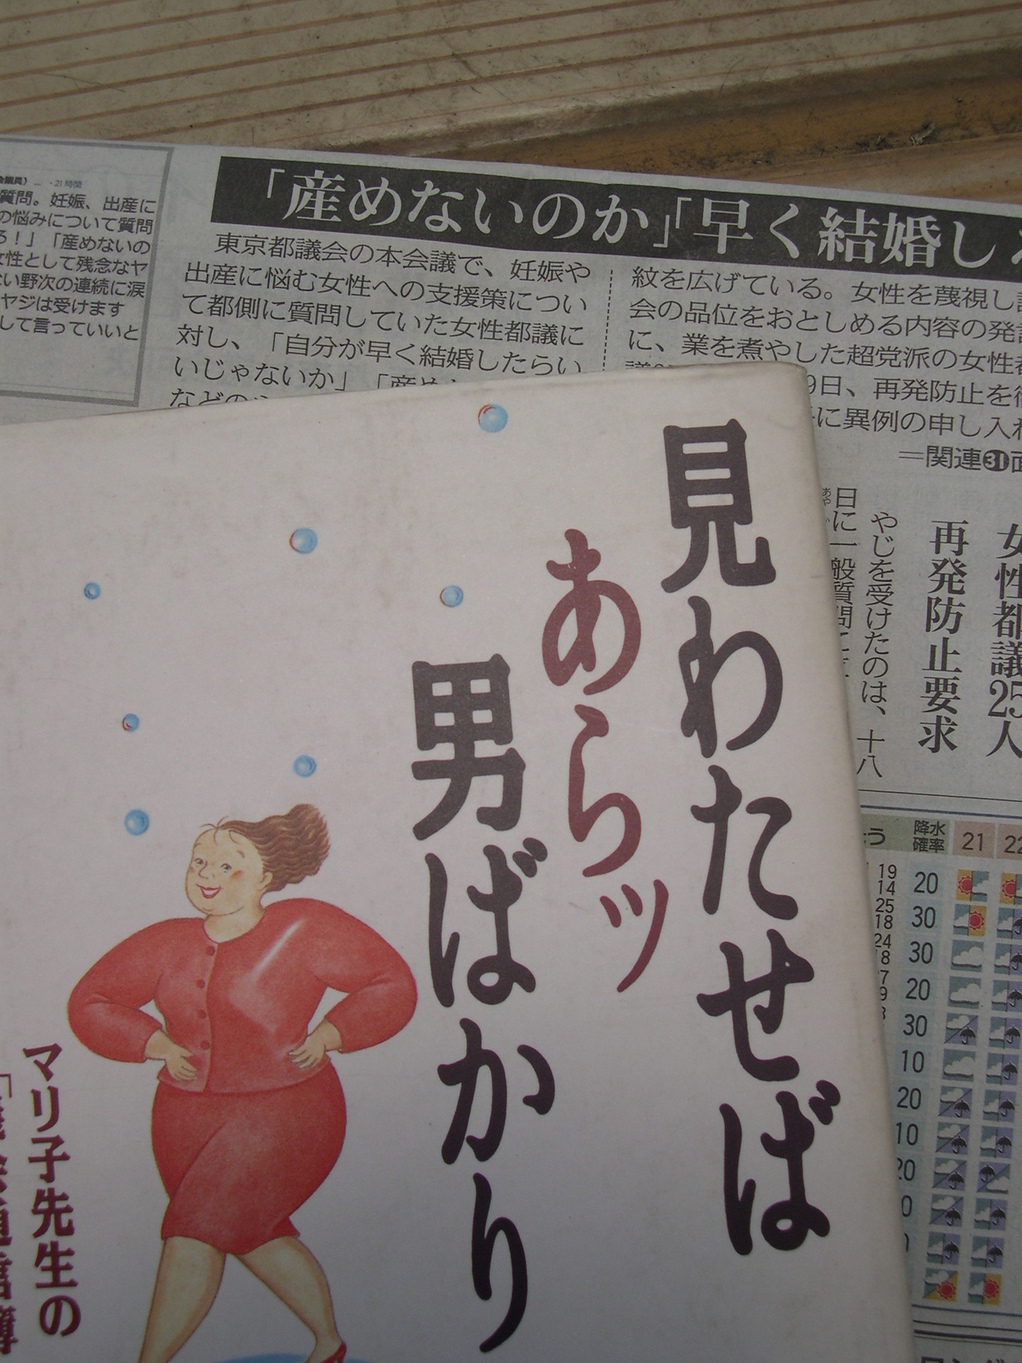 質問。妊娠、出産に
の悩みについて質問
ろ!」「産めないの
女性として残念なヤ
ない野次の連続に涙
ヤジは受けます
して言っていいと
「産めないのか」「早く結婚し
東京都議会の本会議で、妊娠や
出産に悩む女性への支援策につい
て都側に質問していた女性都議に
対し、「自分が早く結婚したらい
いじゃないか」「産め
などの
紋を広げている。女性を蔑視し
会の品位をおとしめる内容の発
に、業を煮やした超党派の女性都
9日、再発防止を
に異例の申し入れ
=関連31面
女性都議25人
再発防止要求
やじを受けたのは、十八
日に一般質問に
見わたせば
あらッ
男ばかり
マリ子先生の
「議会通信簿
降水
確率
21
22
19
14
20
25
18
30
24
30
20
30
10
20
10
20